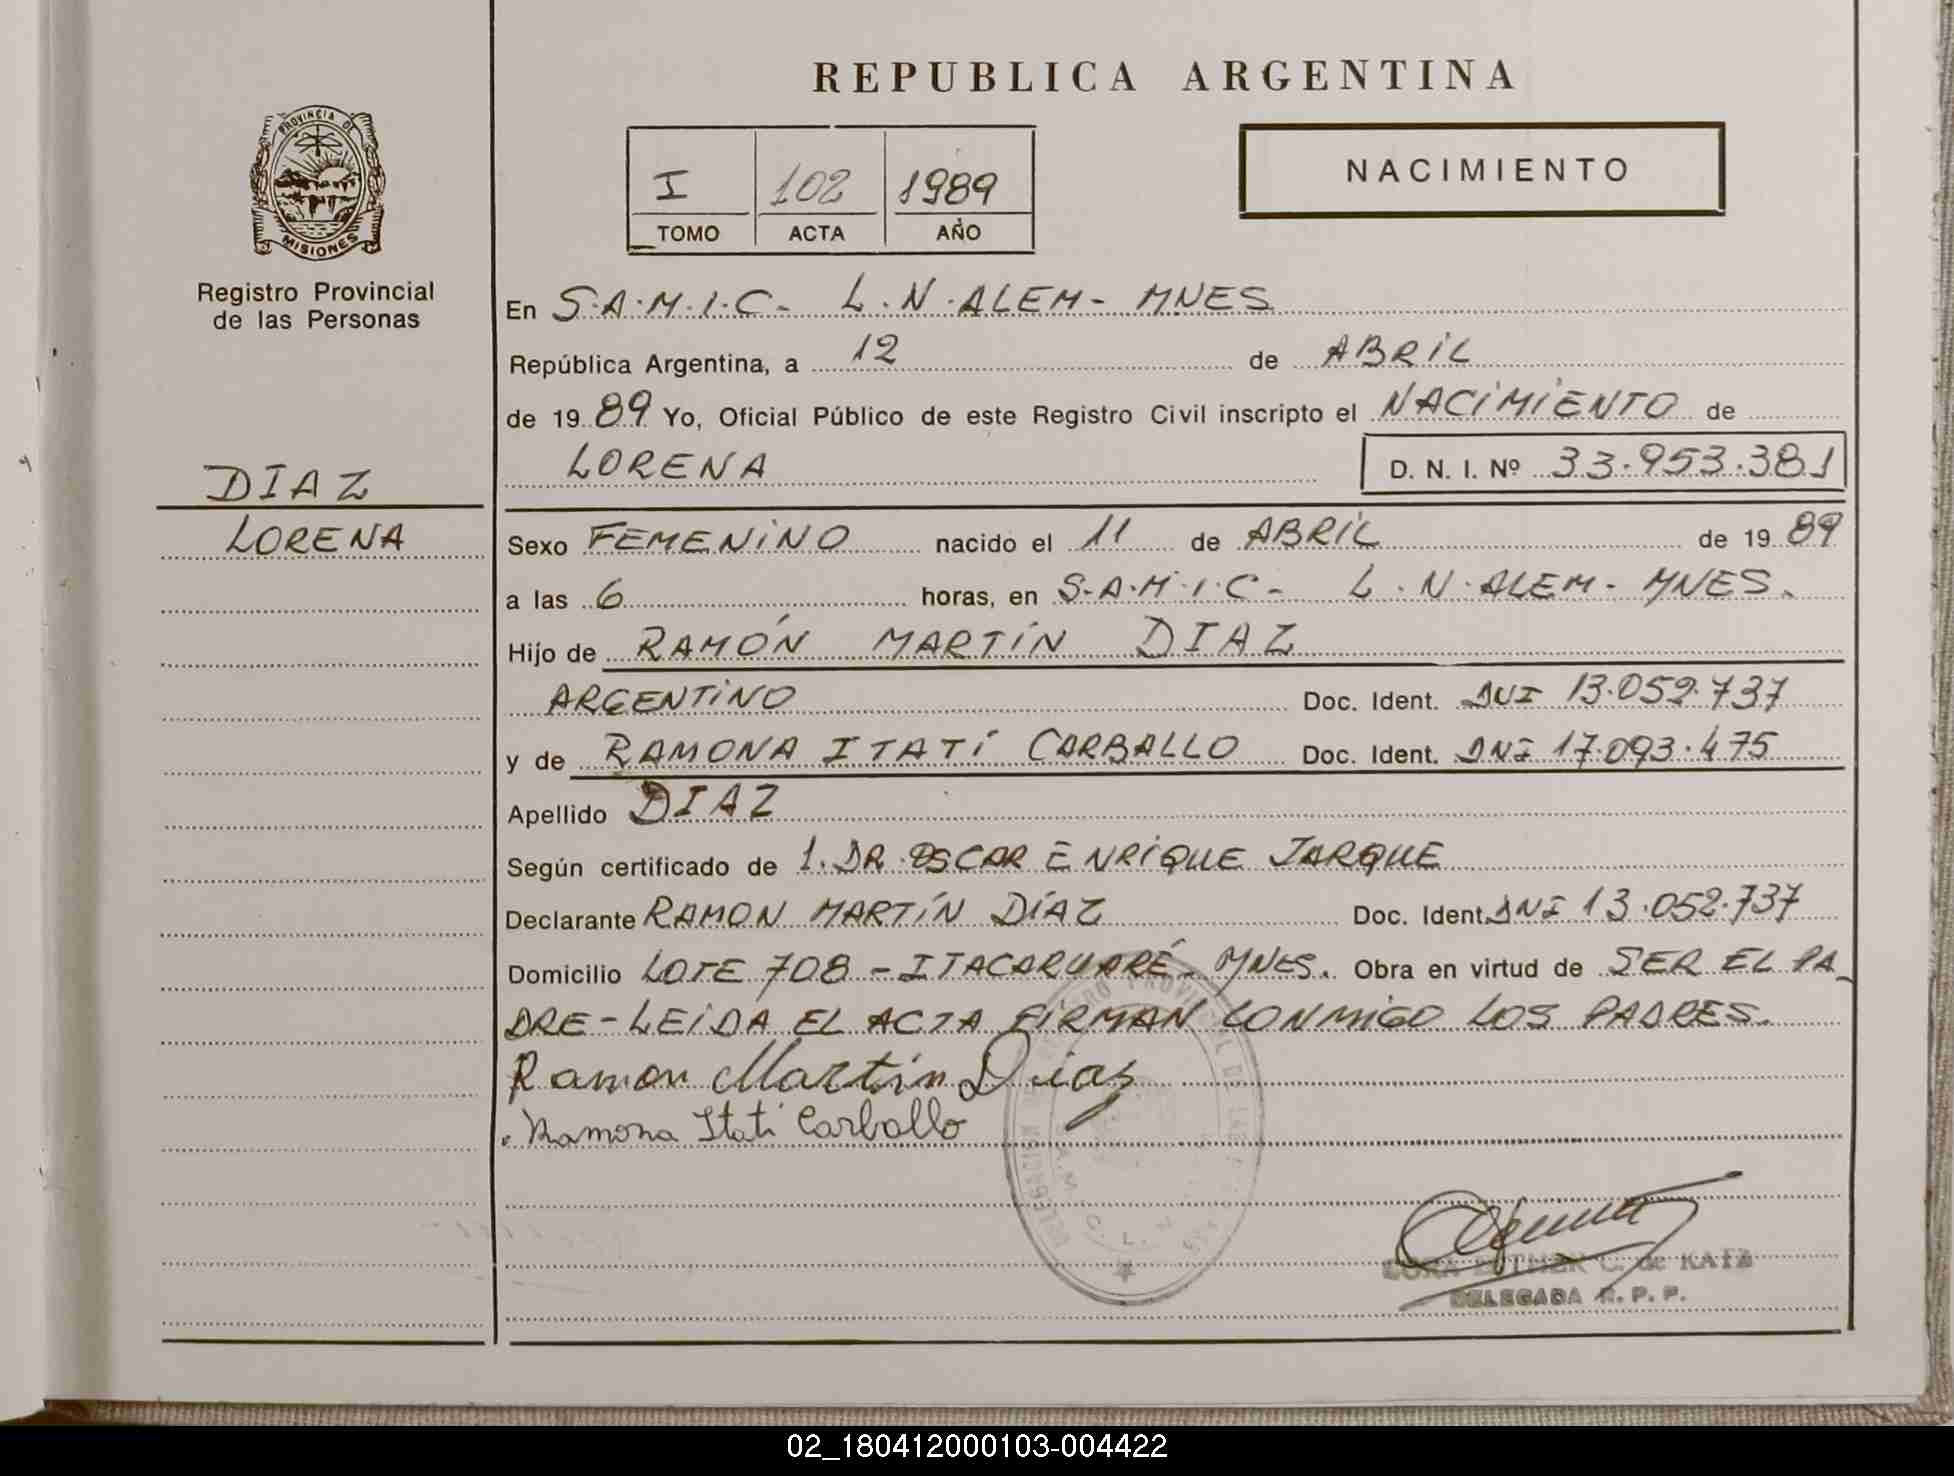 REPUBLICA ARGENTINA
PROVINCIA DE
MISIONES
Registro Provincial
de las Personas
I 102 1989
TOMO ACTA AÑO
NACIMIENTO
DIAZ
LORENA
En S.A.M.I.C- L.N.ALEM- MNES
República Argentina, a 12 de ABRIL
de 1989 Yo, Oficial Público de este Registro Civil inscripto el NACIMIENTO de
LORENA D. N. I. Nº 33.953.381
Sexo FEMENINO nacido el 11 de ABRIL de 1989
a las 6 horas, en S.A.M.I.C- L.N.ALEM- MNES.
Hijo de RAMÓN MARTÍN DIAZ
ARGENTINO Doc. Ident. DNI 13.052.737
y de RAMONA ITATÍ CARBALLO Doc. Ident. DNI 17.093.475
Apellido DIAZ
Según certificado de 1. DR. OSCAR ENRIQUE JARQUE
Declarante RAMON MARTÍN DÍAZ Doc. Ident. DNI 13.052.737
Domicilio LOTE 708 - ITACARUARÉ- MNES. Obra en virtud de SER EL PA-
DRE-LEIDA EL ACTA FIRMAN CONMIGO LOS PADRES.
Ramon Martin Dias
Ramona Itati Carballo
DELEGACION REGISTRO PROVINCIAL DE LAS
S.A.M.I.C. L. N.
C. de KATZ
DELEGADA R. P. P.
02_180412000103-004422